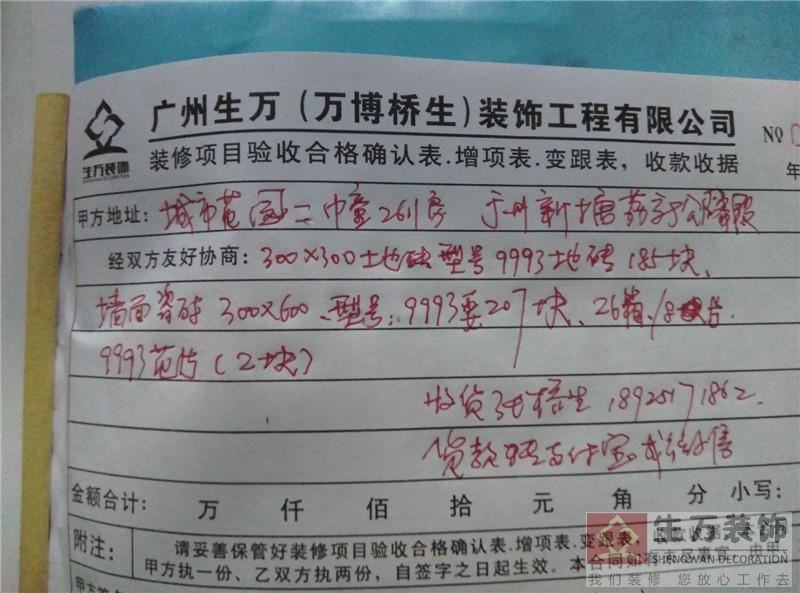 广州生万(万博桥生)装饰工程有限公司
生万装饰
装修项目验收合格确认表.增项表.变跟表,收款收据
NO 0
年
甲方地址:城市花园二中 261
经双方友好协商:300×300 型号9993地砖185块、
墙面瓷砖 300×600、型号:9993要207块、26箱/8
9993花片(2块)
收货 桥生 18925171862.
货款
金额合计: 万 仟 佰 拾 元 角 分 小写:
附注: 请妥善保管好装修项目验收合格确认表.增项表.变跟表
甲方执一份、乙双方执两份,自签字之日起生效。本合同如有未尽事宜,由甲
甲方签
生万装饰
SHENGWAN DECORATION
我们装修 您放心工作去